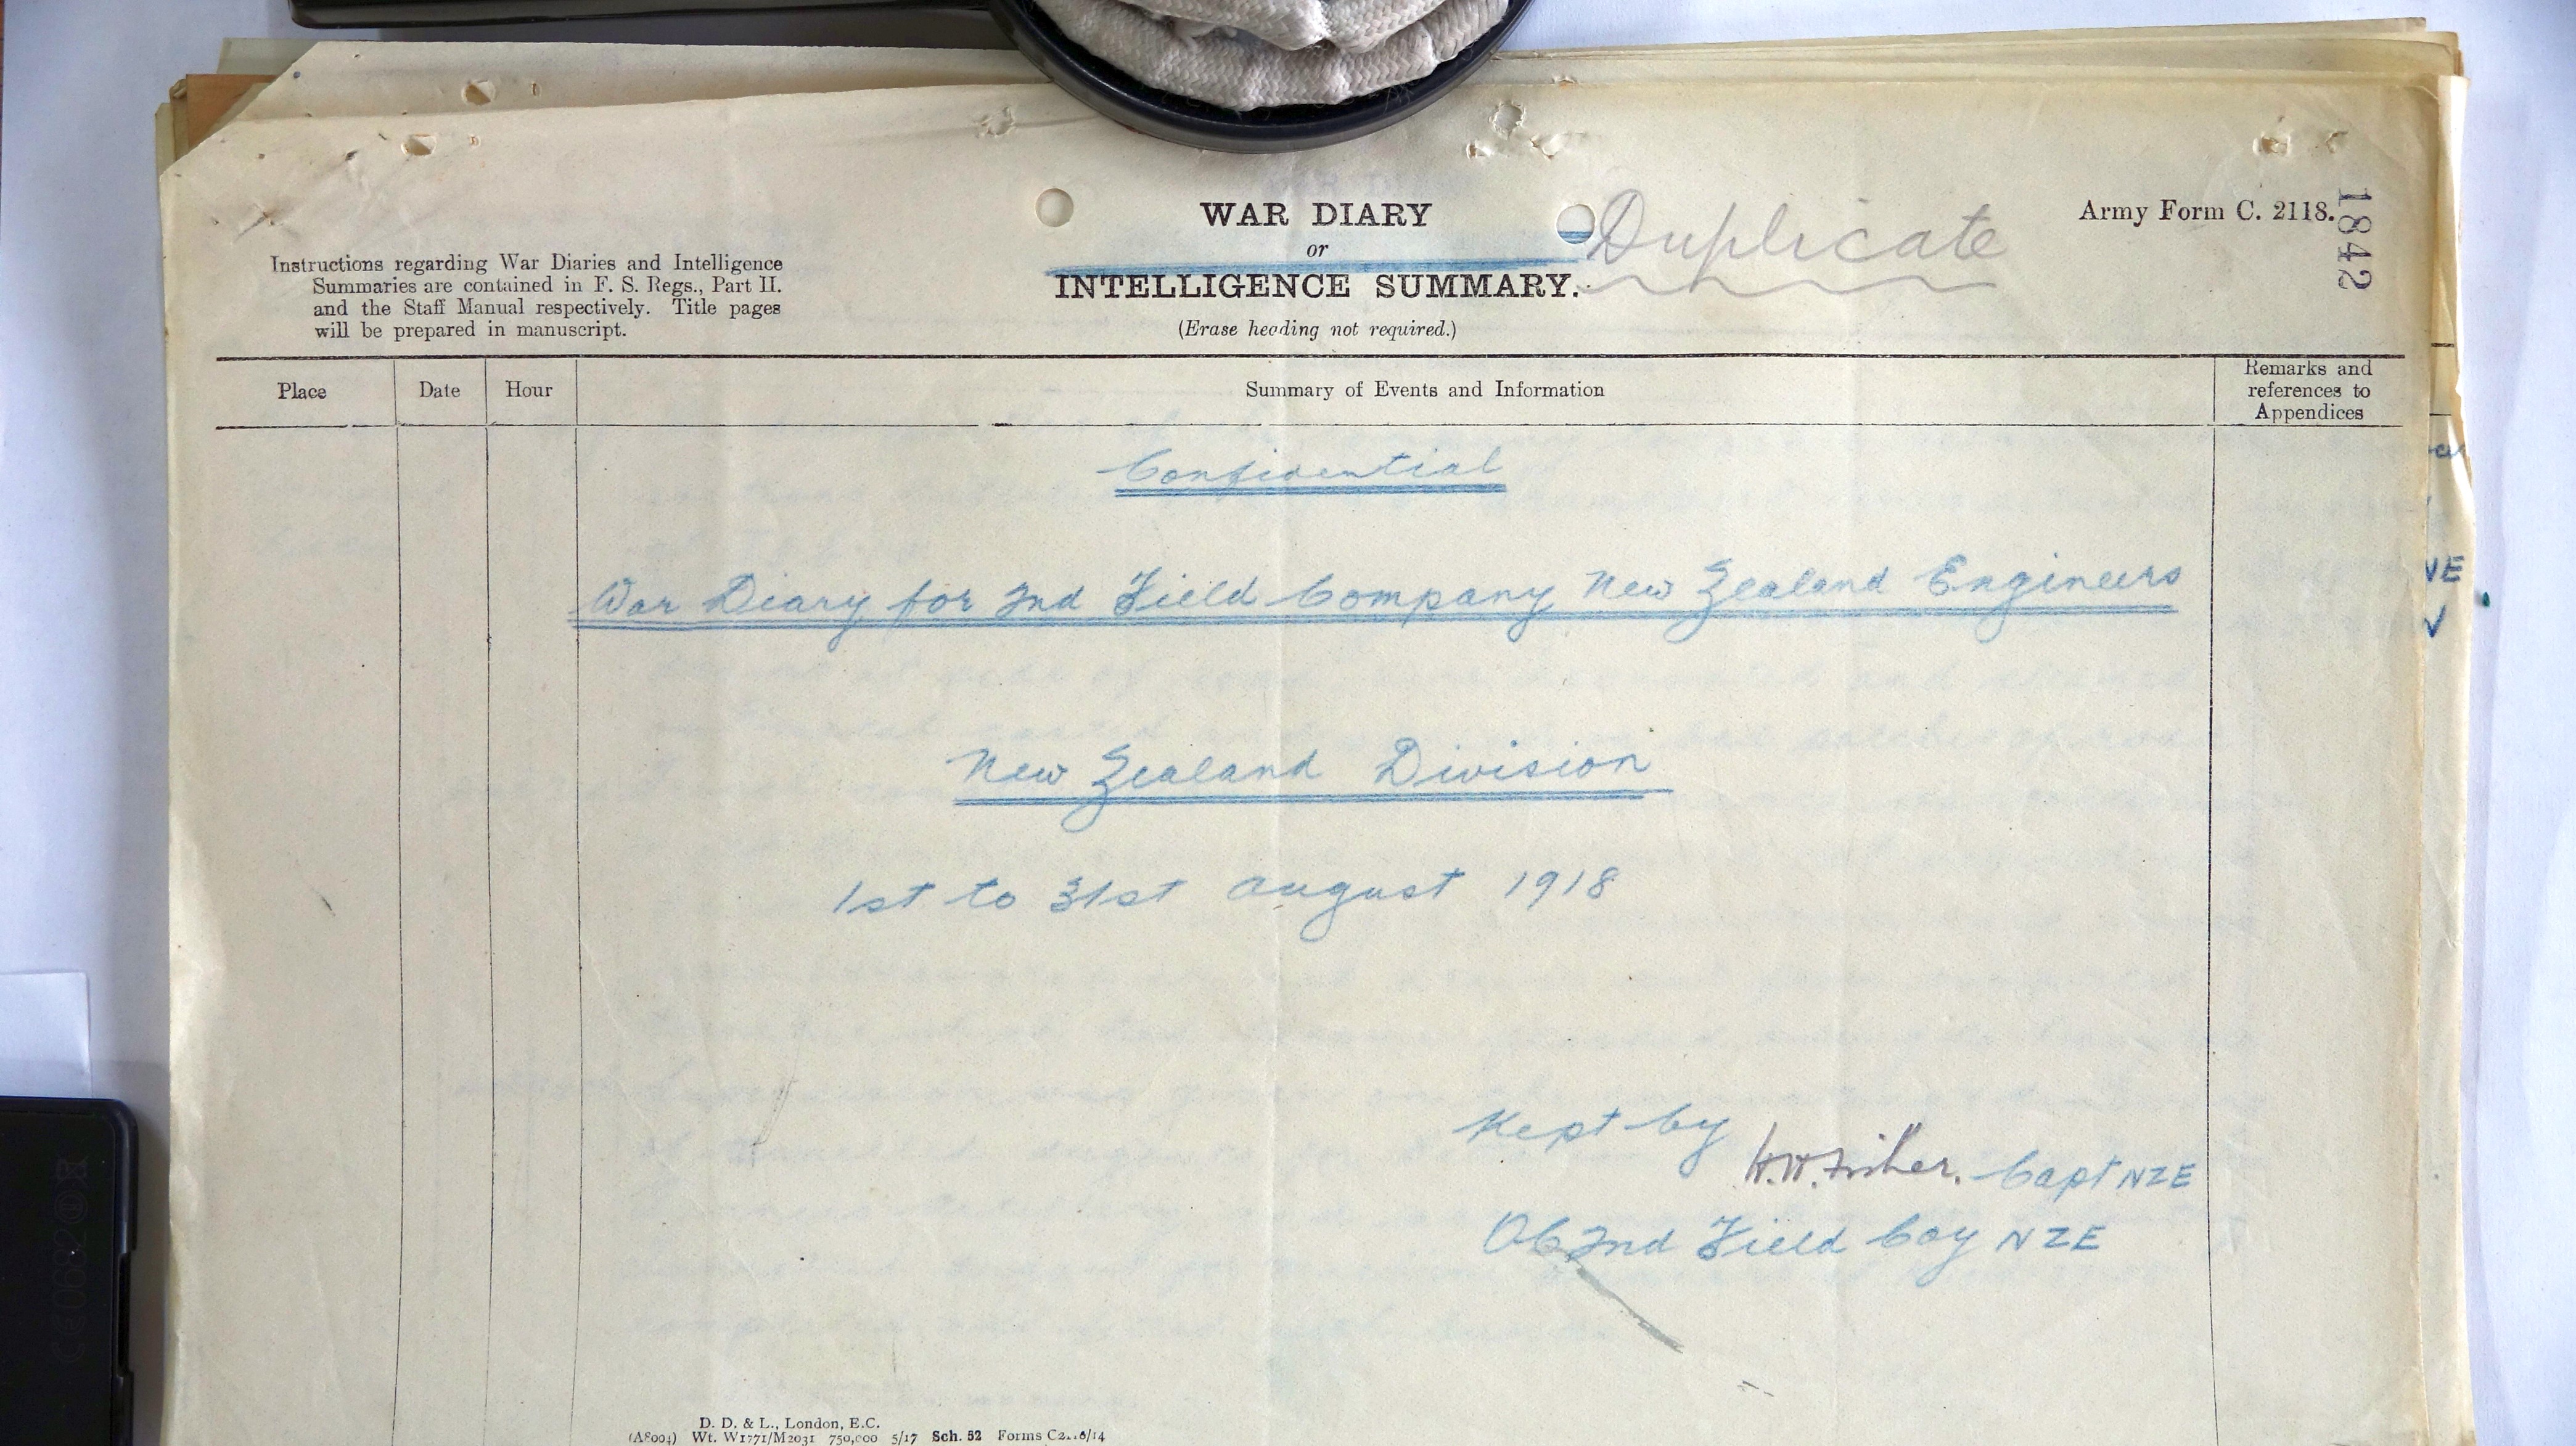 WAR DIARY
or
INTELLIGENCE SUMMARY.
(Erase heading not required.)
Duplicate
Army Form C. 2118.
1842
Instructions regarding War Diaries and Intelligence
Summaries are contained in F. S. Regs., Part II.
and the Staff Manual respectively. Title pages
will be prepared in manuscript.
Place Date Hour Summary of Events and Information Remarks and
references to
Appendices
Confidential
War Diary for 2nd Field Company New Zealand Engineers
New Zealand Division
1st to 31st August 1918
Kept by
Capt NZE
OC 2nd Field Coy NZE
D. D. & L., London, E.C.
(A8004) Wt. W1771/M2031 750,000 5/17 Sch. 52 Forms C2118/14